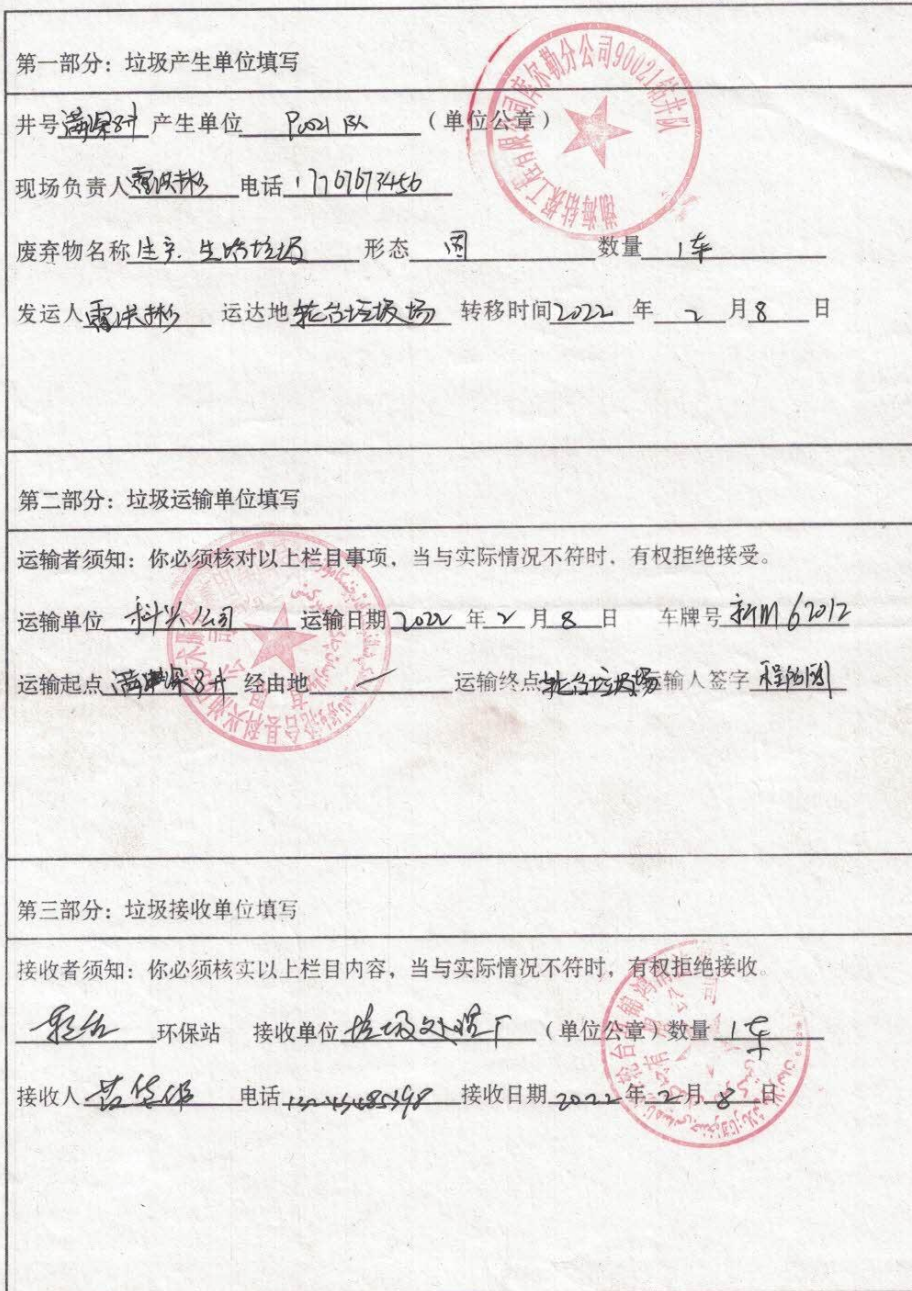 第一部分：垃圾产生单位填写
渤海钻探工程有限公司库尔勒分公司90021钻井队
井号满深8井 产生单位 P0021队 （单位公章）
现场负责人雷洪彬 电话17767673456
废弃物名称生产.生活垃圾 形态 固 数量 1车
发运人雷洪彬 运达地轮台垃圾场 转移时间2022 年 2 月8 日
第二部分：垃圾运输单位填写
运输者须知：你必须核对以上栏目事项，当与实际情况不符时，有权拒绝接受。
运输单位 科兴公司 运输日期2022 年 2 月 8 日 车牌号新M 62012
运输起点满深8井 经由地 — 运输终点轮台垃圾场运输人签字
第三部分：垃圾接收单位填写
接收者须知：你必须核实以上栏目内容，当与实际情况不符时，有权拒绝接收。
轮台 环保站 接收单位垃圾处理厂 （单位公章）数量 1车
接收人 电话 接收日期 2022 年 2 月 8 日